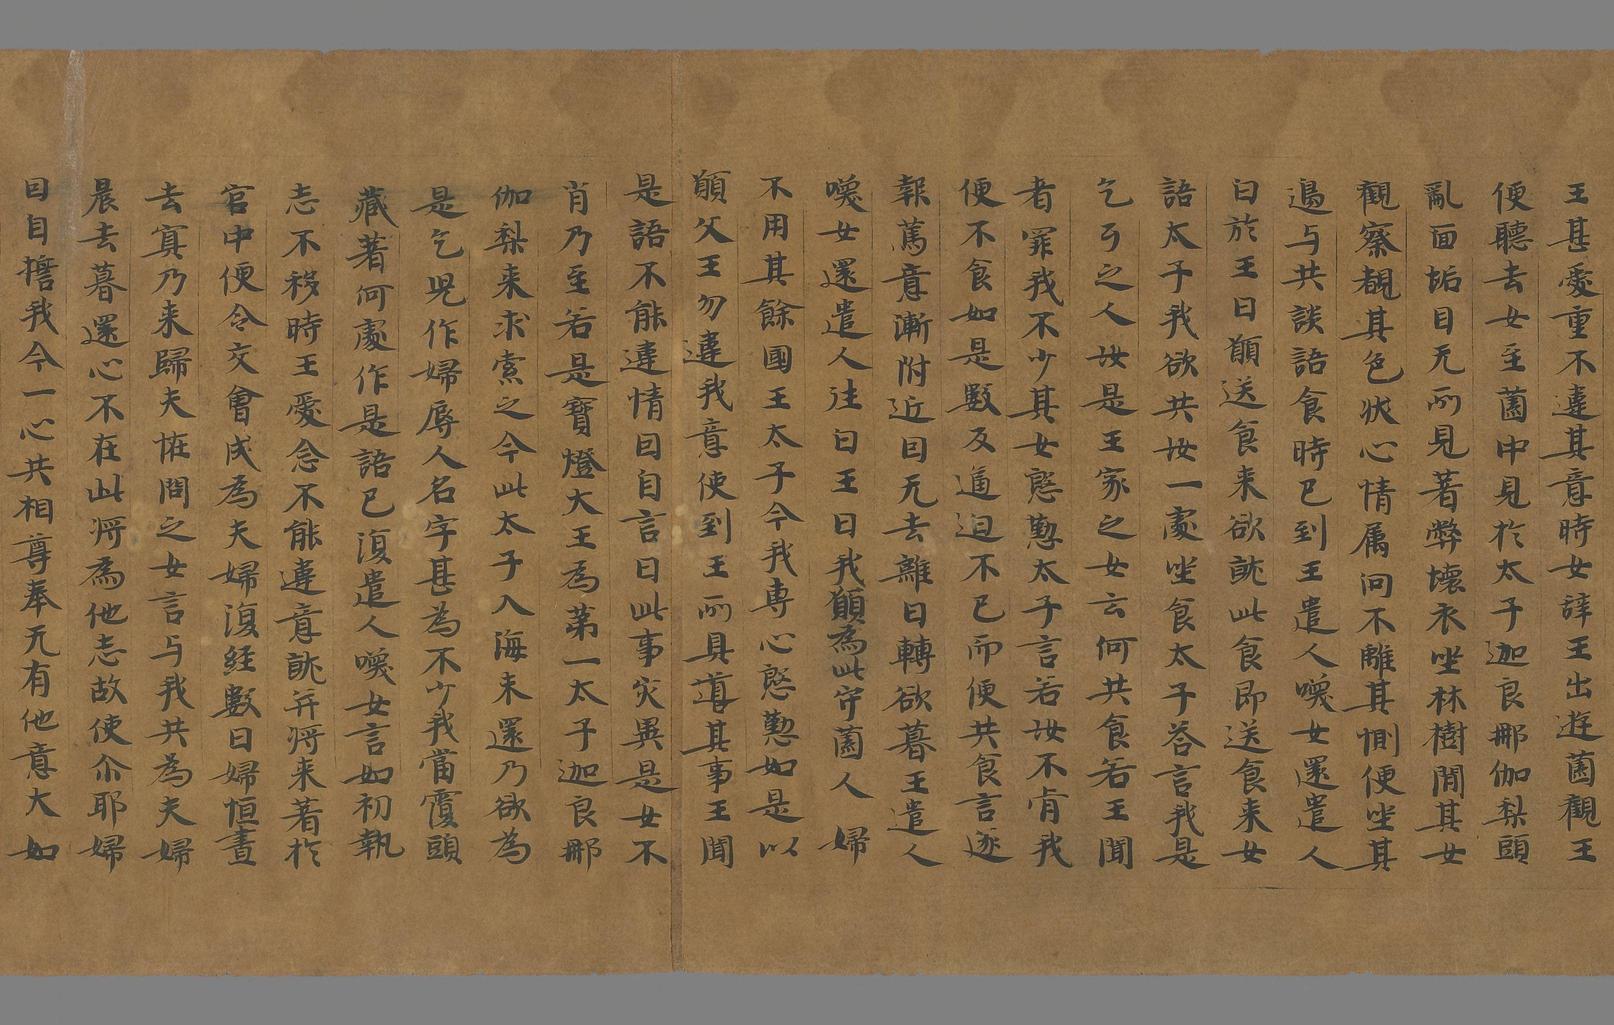 王甚愛重不違其意時女辞王出遊薗觀王
便聽去女至薗中見於太子迦良那伽梨頭
亂面垢目无所見著弊壞衣坐林樹間其女
觀察覩其色狀心情属向不離其惻便坐其
邊与共談語食時已到王遣人喚女還遣人
白於王曰願送食来欲就此食即送食来女
語太子我欲共汝一處坐食太子荅言我是
乞丐之人汝是王家之女云何共食若王聞
者罪我不少其女慇懃太子言若汝不肯我
便不食如是數反逼迫不已而便共食言遂
報篤意漸附近目无去離日轉欲暮王遣人
喚女還遣人往白王曰我願為此守薗人婦
不用其餘國王太子今我専心慇懃如是以
願父王勿違我意使到王所具導其事王聞
是語不能違情目自言曰此事灾異是女不
肖乃至若是寶燈大王為第一太子迦良那
伽梨来求索之今此太子入海未還乃欲為
是乞児作婦辱人名字甚為不少我當覆頭
藏著何處作是語已復遣人喚女言如初執
志不移時王愛念不能違意就并将来著於
宮中便令交會成為夫婦復経數日婦恒晝
去寘乃来歸夫恠問之女言与我共為夫婦
晨去暮還心不在此将為他志故使尒耶婦
目自擔我今一心共相尊奉无有他意大如